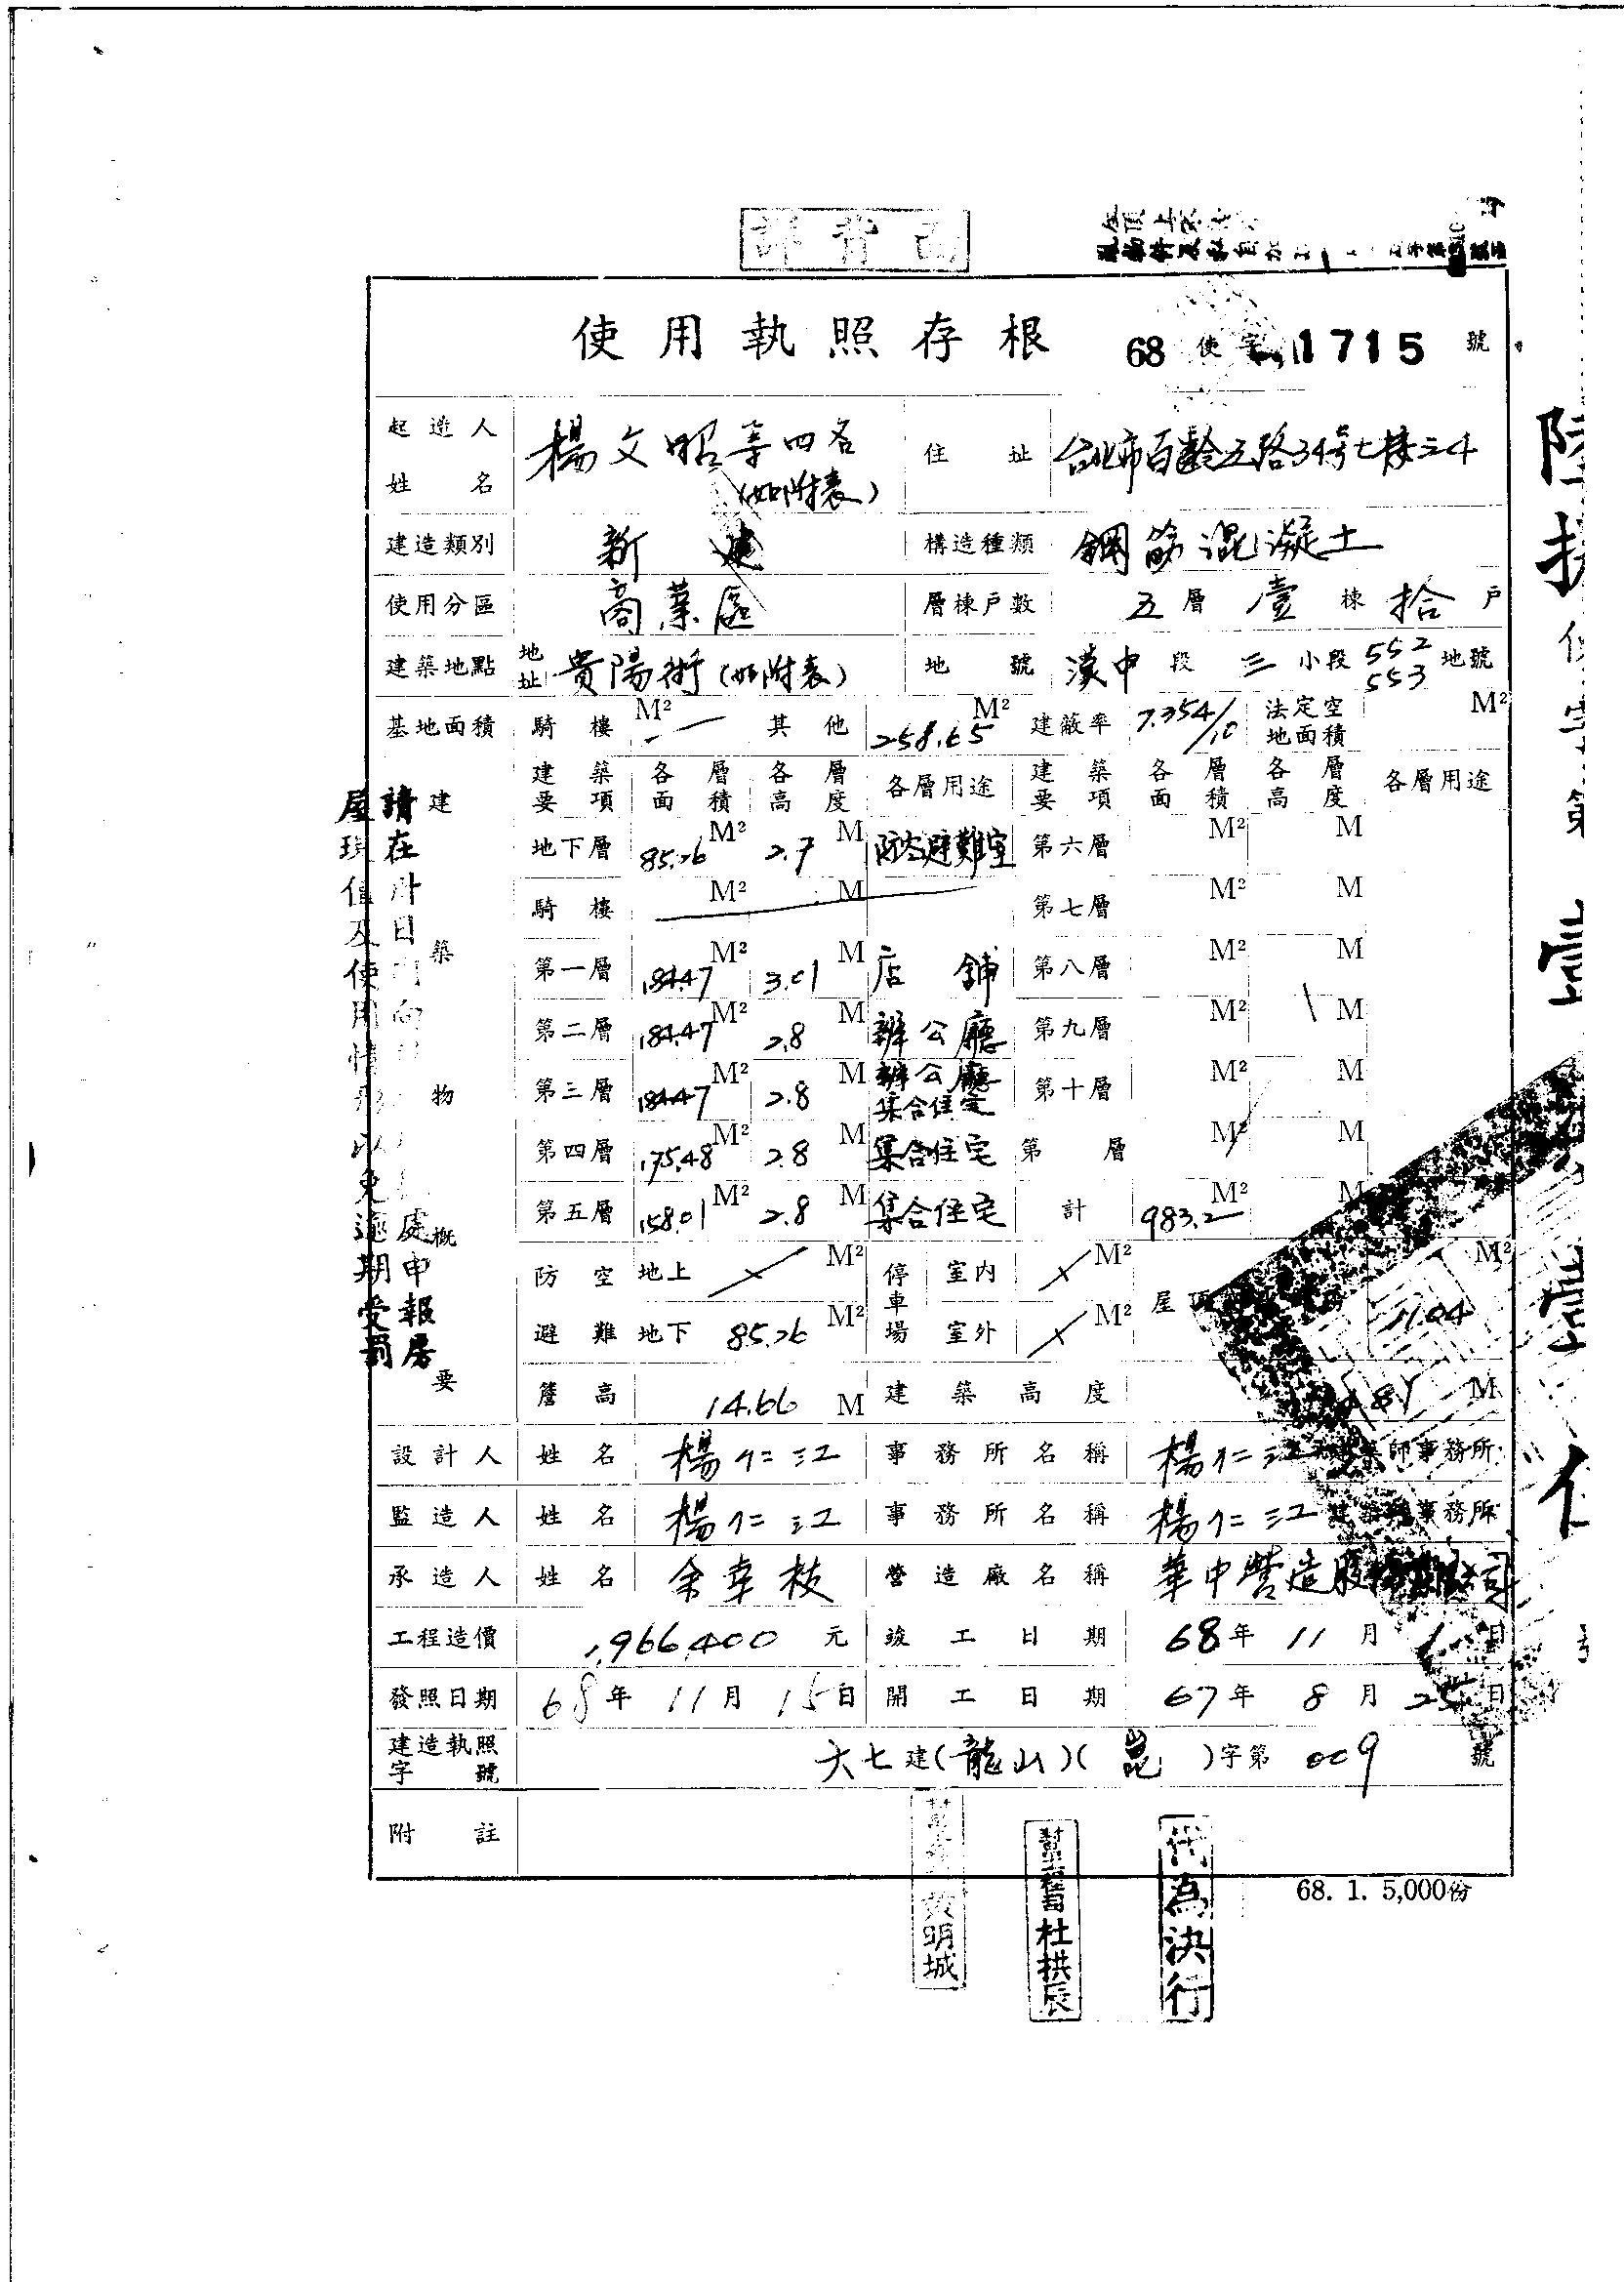 詳背面
使用執照存根 68 使字 1715 號
起造人姓名 楊文昭等四名(如附表) 住址 台北市百齡五路34号七棟之4
建造類別 新建 構造種類 鋼筋混凝土
使用分區 商業區 層棟戶數 五層 壹棟 拾戶
建築地點 地址 貴陽街(如附表) 地號 漢中段 三小段 552 553 地號
基地面積 騎樓 M² 其他 258.65 M² 建蔽率 7.354/10 法定空地面積 M²
建築物概要
建築要項 各層面積 各層高度 各層用途 建築要項 各層面積 各層高度 各層用途
地下層 85.26 M² 2.7 M 防空避難室 第六層 M² M
騎樓 M² M 第七層 M² M
第一層 184.47 M² 3.01 M 店舖 第八層 M² M
第二層 184.47 M² 2.8 M 辦公廳 第九層 M² M
第三層 184.47 M² 2.8 M 辦公廳 集合住宅 第十層 M² M
第四層 175.48 M² 2.8 M 集合住宅 第層 M² M
第五層 158.01 M² 2.8 M 集合住宅 計 983.2 M² M
防空避難 地上 × M² 停車場 室內 × M² 屋頂 11.04 M²
地下 85.26 M² 室外 × M²
簷高 14.66 M 建築高度 M
設計人 姓名 楊仁江 事務所名稱 楊仁江建築師事務所
監造人 姓名 楊仁江 事務所名稱 楊仁江建築師事務所
承造人 姓名 余幸枝 營造廠名稱 華中營造股份有限公司
工程造價 1,966,400 元 竣工日期 68年 11月 1日
發照日期 68年 11月 15日 開工日期 67年 8月 25日
建造執照字號 六七建(龍山)(崑)字第 009 號
附註
68. 1. 5,000份
明城
杜拱辰
代為決行